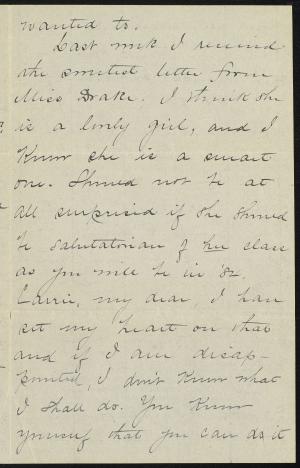 wanted to.
Last week I received
the sweetest letter from
Miss Drake. I think she
is a lovely girl, and I
know she is a smart
one. Should not be at
all surprised if she should
be Salutatorian of her class
as you will be in '82.
Carrie, my dear, I have
set my heart on that
and if I am disap-
pointed, I don't know what
I shall do. You know
yourself that you can do it